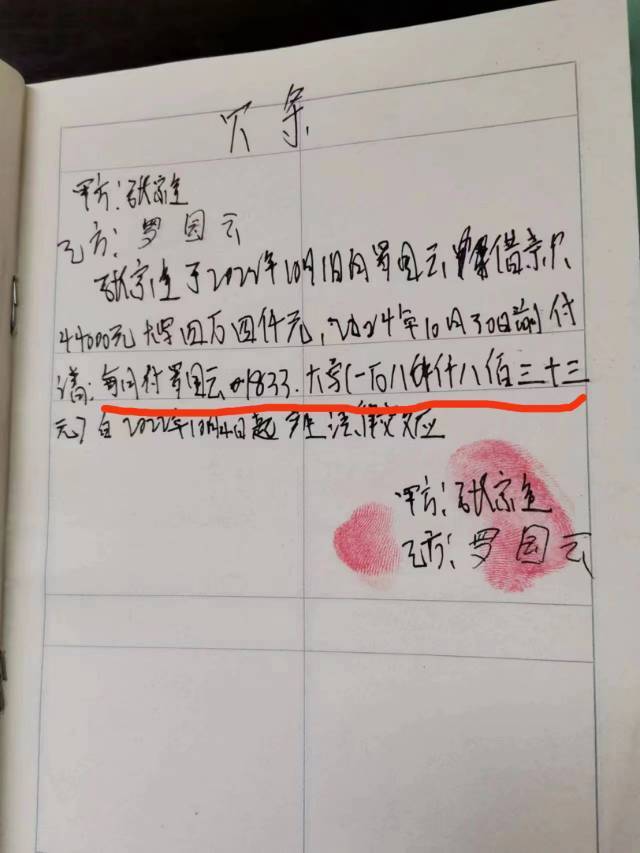 欠条
甲方：张宗生
乙方：罗园云
张宗生于2022年10月1日向罗园云借款
44000元大写四万四仟元，2024年10月30日前付
清，每月付罗园云1833.大写(一八仟八佰三十三
元)自2022年10月4日起产生法律效应
甲方：张宗生
乙方：罗园云